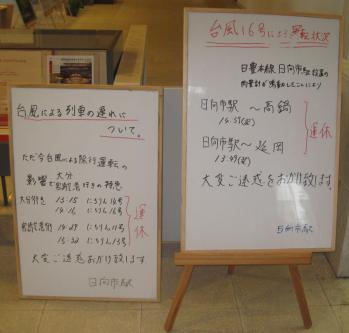 台風による列車の遅れに
ついて。
ただ今台風による徐行運転の
影響で大分
宮崎空港行きの特急
大分行き 13:15 にちりん14号
14:16 にちりん16号
運休
宮崎空港行 14:29 にちりん11号
15:32 にちりん13号
大変ご迷惑おかけ致します
日向市駅
台風16号による運転状況
日豊本線 日向市駅
日向市駅〜高鍋
14:57(発)
運休
日向市駅〜延岡
13:49(発)
大変ご迷惑をおかけ致します。
日向市駅